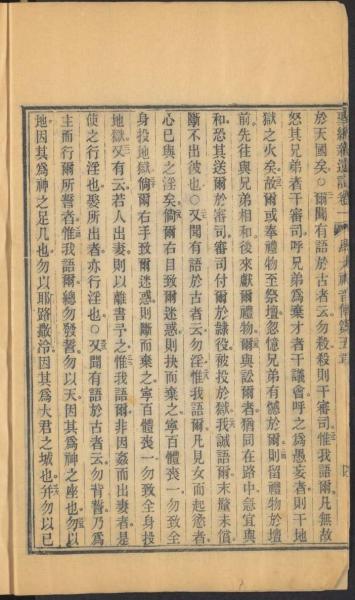 聖經新遺詔卷一
於天國矣○爾聞有語於古者云勿殺殺則干審司惟我語爾凡無故
怒其兄弟者干審司呼兄弟爲棄才者干議會呼之爲愚妄者則干地
獄之火矣故爾或奉禮物至祭壇忽憶兄弟有憾於爾則留禮物於壇
前先往與兄弟相和後來獻爾禮物爾與訟爾者猶同在路中急宜與
和恐其送爾於審司審司付爾於隷役被投於獄我誠語爾末釐未償
斷不出彼也○又聞有語於古者云勿淫惟我語爾凡見女而起慾者
心已與之淫矣倘爾右目致爾迷惑則抉而棄之寧百體喪一勿致全
身投地獄倘爾右手致爾迷惑則斷而棄之寧百體喪一勿致全身投
地獄又有云若人出妻則以離書予之惟我語爾非因姦而出妻者是
使之行淫也娶所出者亦行淫也○又聞有語於古者云勿背誓乃爲
主而行爾所誓者惟我語爾總勿發誓勿以天因其爲神之座也勿以
地因其爲神之足几也勿以耶路撒冷因其爲大君之城也幷勿以己